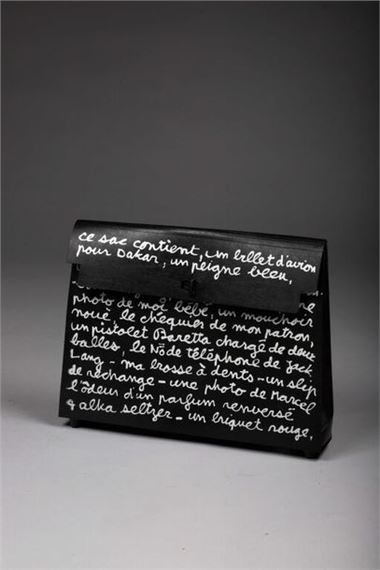 ce sac contient, un billet d'avion
pour Dakar, un peigne bleu,
photo de "moi" bébé, un mouchoir
noué, le chéquier de mon patron,
un pistolet Baretta chargé de deux
balles, le No de téléphone de Jack
Lang - ma brosse à dents - un slip
de rechange - une photo de Marcel
l'odeur d'un parfum renversé
4 alka seltzer - un briquet rouge,